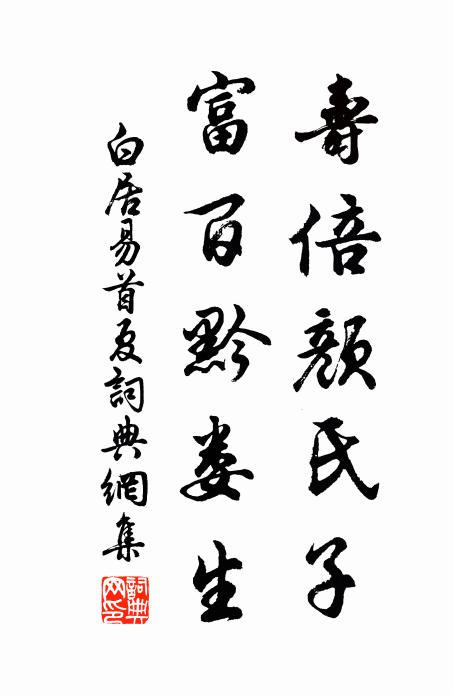 壽倍顏氏子
富百黔婁生
白居易首夏詞典網集
詞典网印